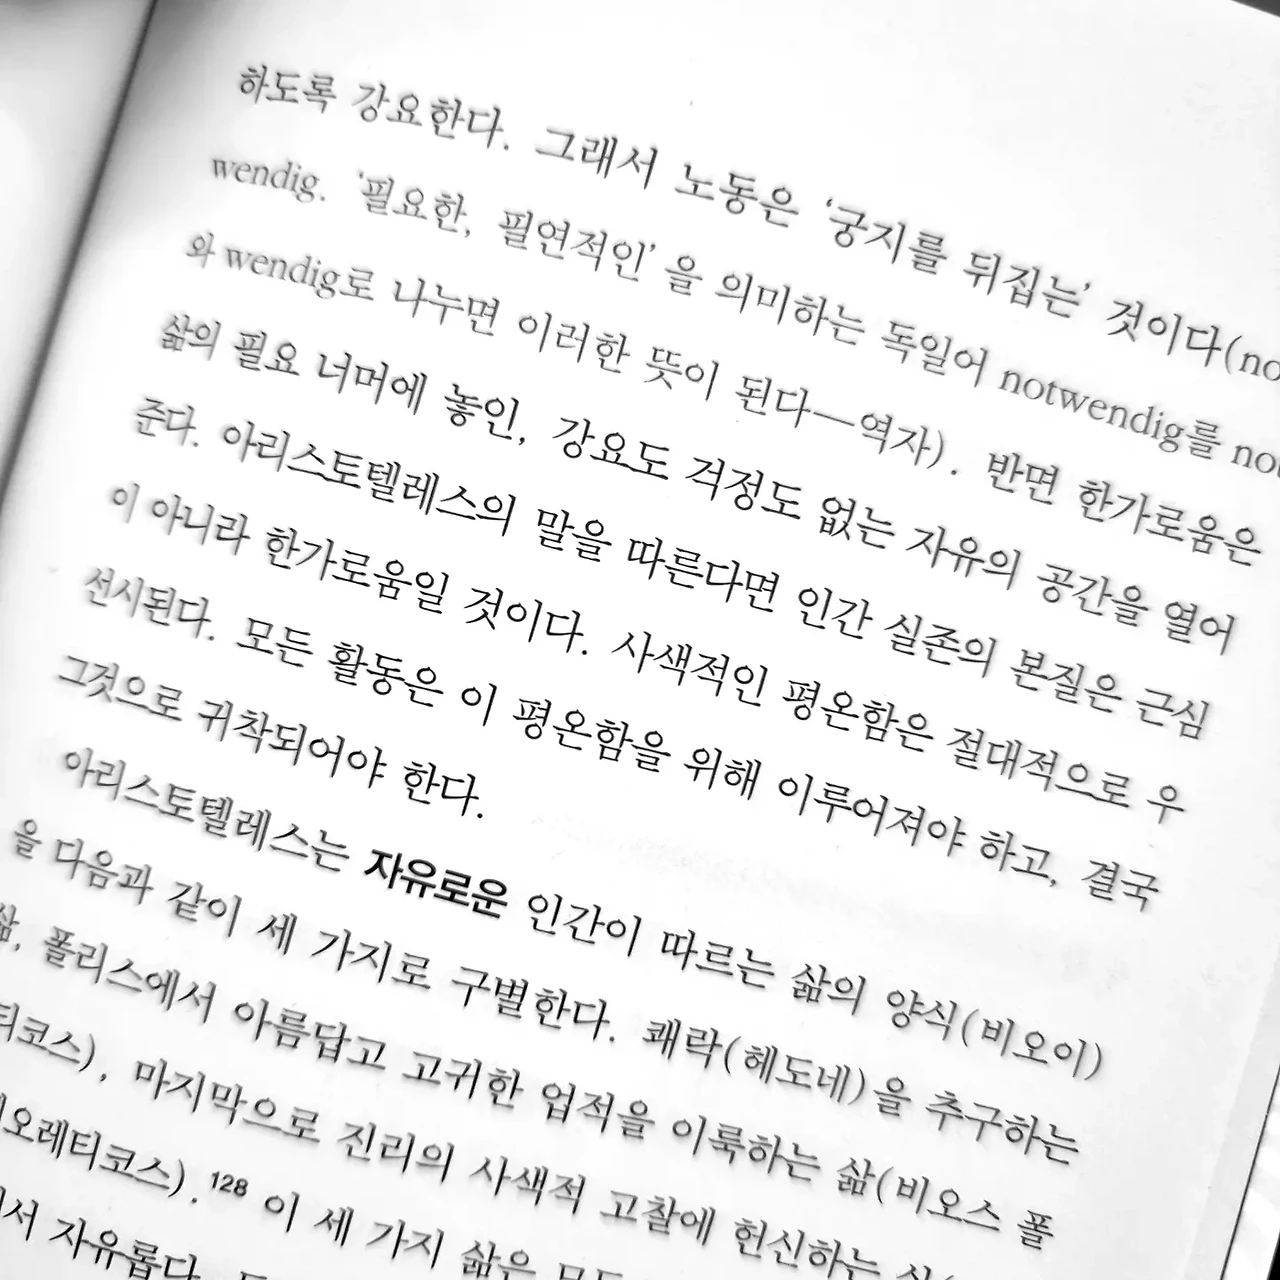 하도록 강요한다. 그래서 노동은 ‘궁지를 뒤집는’ 것이다(no
wendig. ‘필요한, 필연적인’을 의미하는 독일어 notwendig를 not
와 wendig로 나누면 이러한 뜻이 된다—역자). 반면 한가로움은
삶의 필요 너머에 놓인, 강요도 걱정도 없는 자유의 공간을 열어
준다. 아리스토텔레스의 말을 따른다면 인간 실존의 본질은 근심
이 아니라 한가로움일 것이다. 사색적인 평온함은 절대적으로 우
선시된다. 모든 활동은 이 평온함을 위해 이루어져야 하고, 결국
그것으로 귀착되어야 한다.
아리스토텔레스는 자유로운 인간이 따르는 삶의 양식(비오이)
을 다음과 같이 세 가지로 구별한다. 쾌락(헤도네)을 추구하는
삶, 폴리스에서 아름답고 고귀한 업적을 이룩하는 삶(비오스 폴
티코스), 마지막으로 진리의 사색적 고찰에 헌신하는
오레티코스).128 이 세 가지 삶은 모두
서 자유롭다.